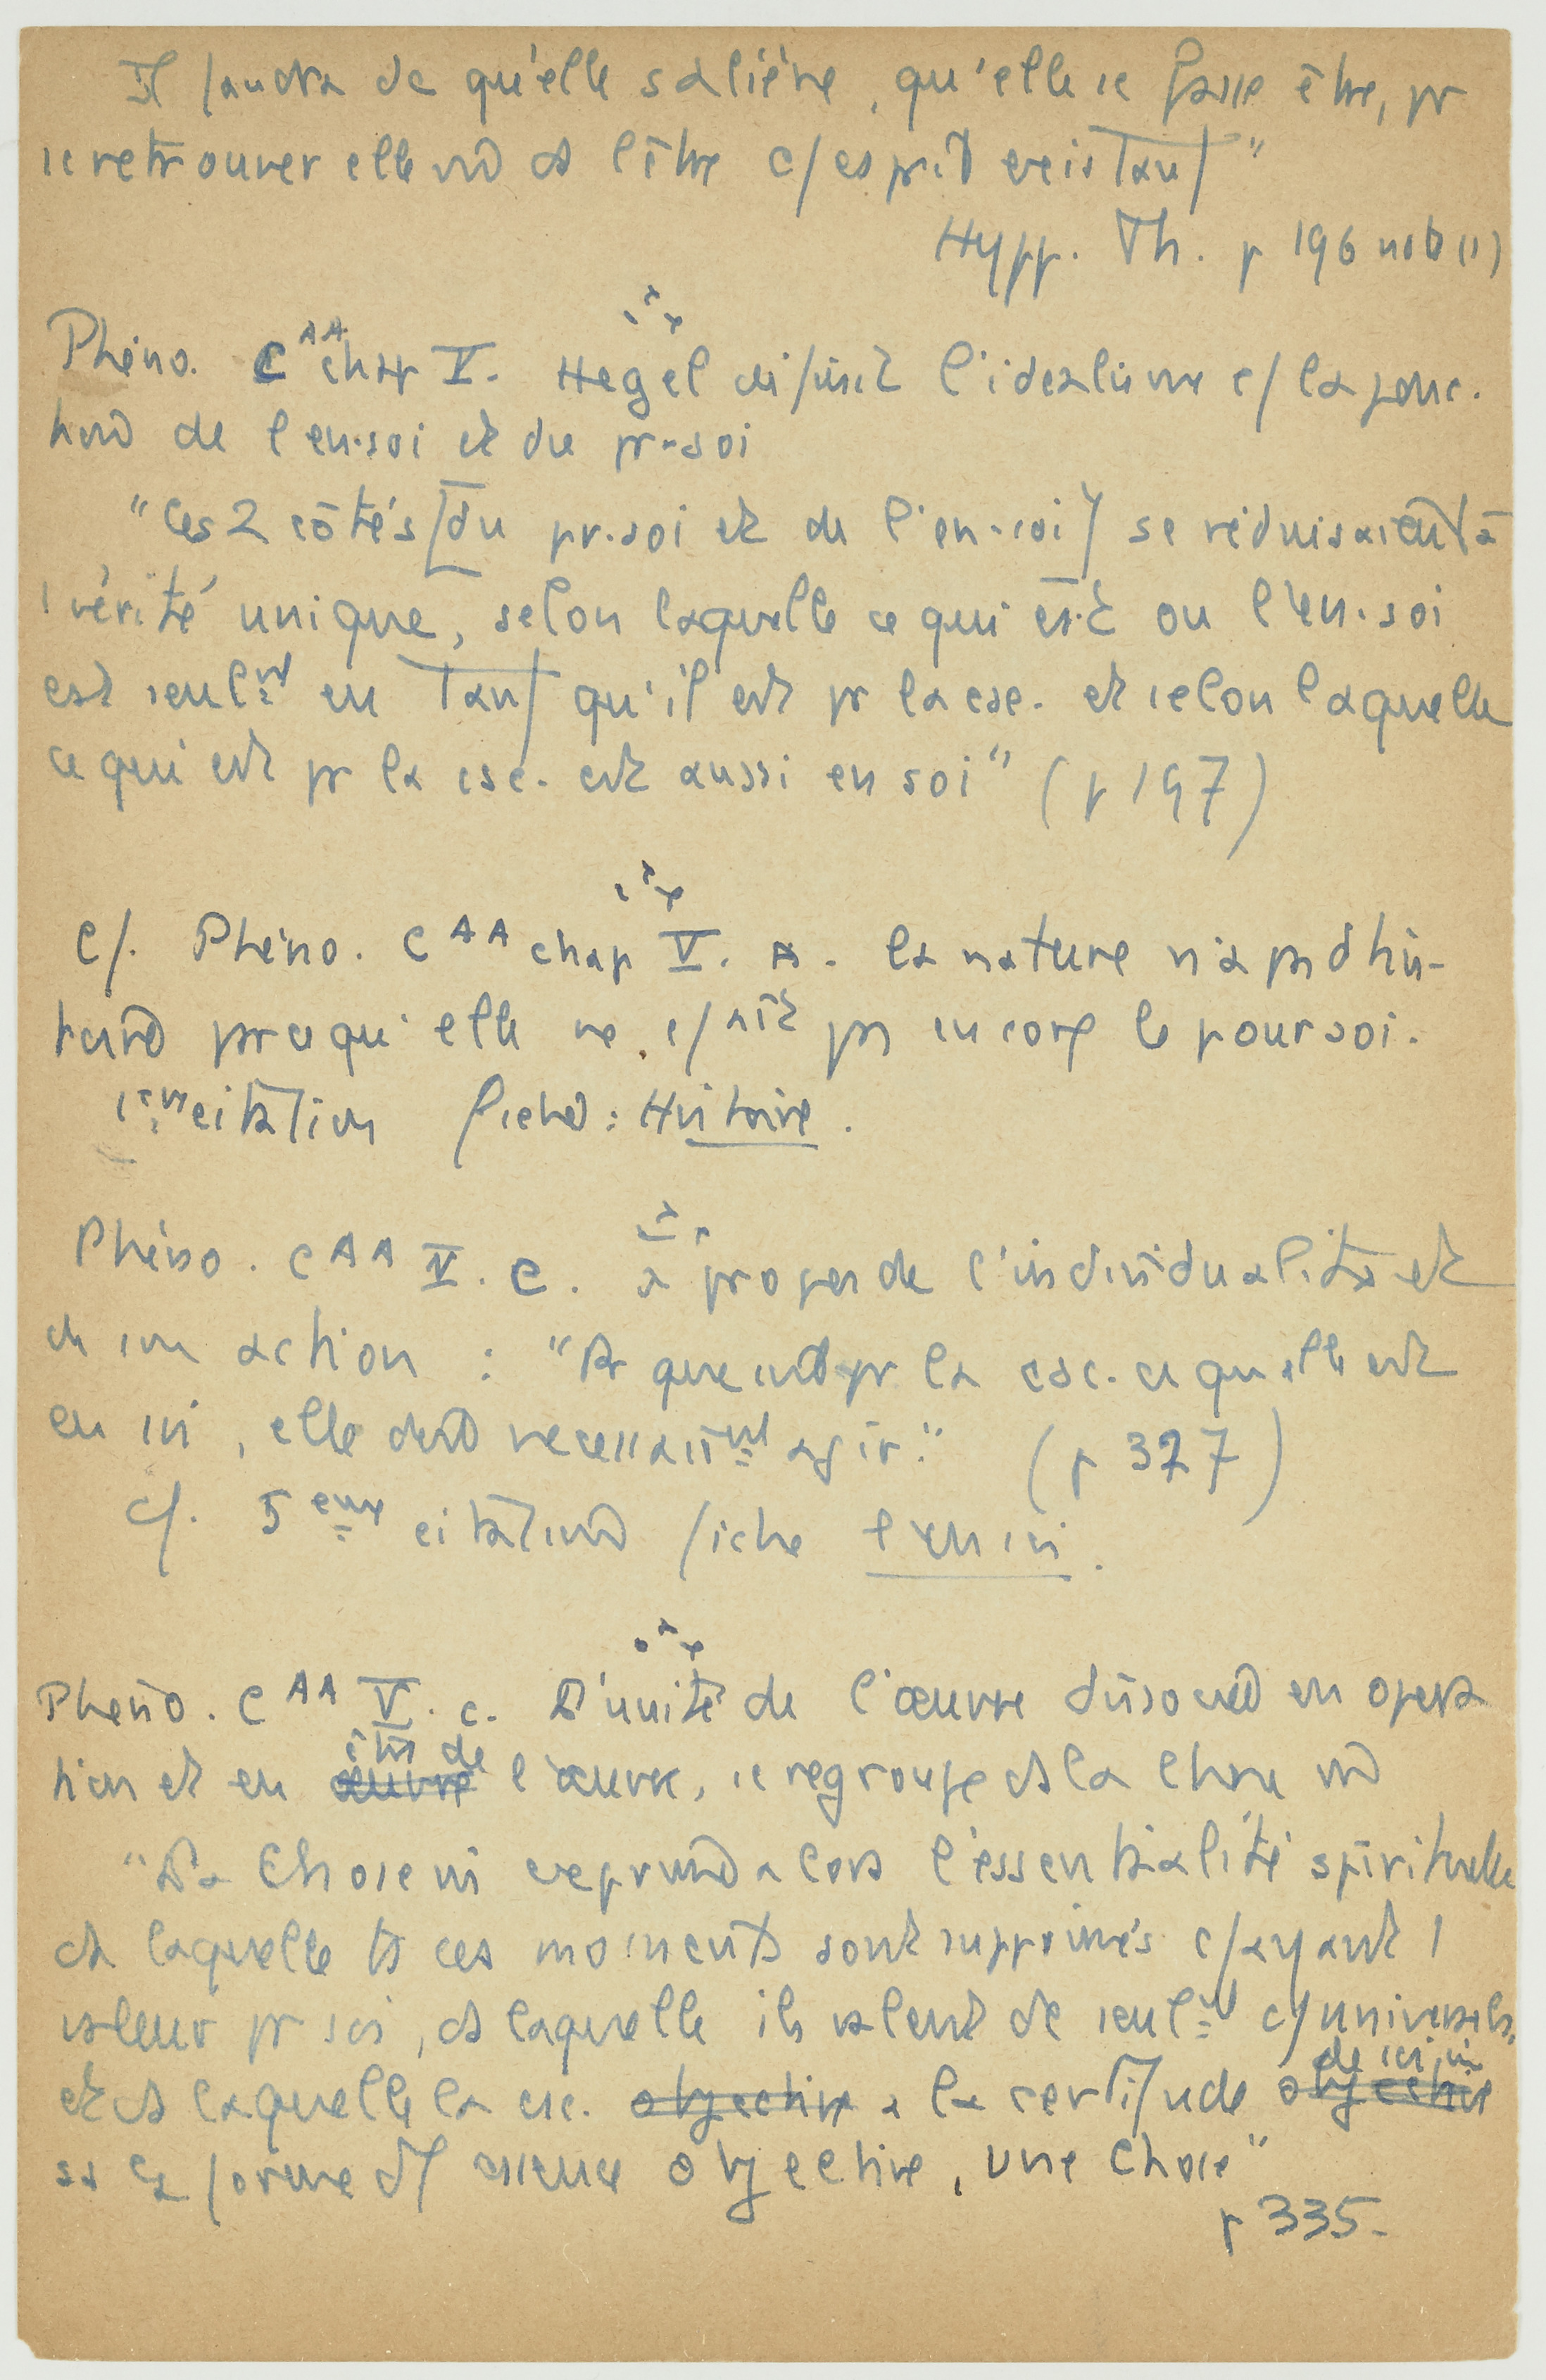 Il faudra dc qu'elle s'aliène, qu'elle se fasse être, pr
se retrouver elle m̂ ds l'être c/ esprit existant"
Hypp. Th. p 196 note (1)
Phéno. C AA chap V. Hegel définit l'idéalisme c/ la fonc-
tion de l'en-soi et du pr-soi
"Ces 2 côtés [du pr-soi et de l'en-soi] se réduisaient à
1 vérité unique, selon laquelle ce qui est ou l'en-soi
est seulmt en tant qu'il est pr la csc. et selon laquelle
ce qui est pr la csc. est aussi en soi" (p 197)
C/. Phéno. C AA chap V. A. La nature n'a pas d'his-
toire prce qu'elle ne c/naît pas encore le pour soi.
citation fiche : Histoire.
Phéno. C AA V. C. à propos de l'individualité et
de son action : "Pr que soit pr la csc. ce qu'elle est
en soi, elle doit nécessairmt agir." (p 327)
c/. 5eme citation fiche l'en soi.
Phéno. C AA V. c. L'unité de l'œuvre dissociée en opéra
tion et en œuvre être de l'œuvre, se regroupe ds la Chose m̂
"La Chose m̂ exprime alors l'essentialité spirituelle
ds laquelle ts ces moments sont supprimés c/ ayant 1
valeur pr soi, ds laquelle ils valent dc seulmt c/ universels,
et ds laquelle la csc. objective a la certitude objective de soi,
ss la forme d'1 essence objective, une Chose"
p 335.